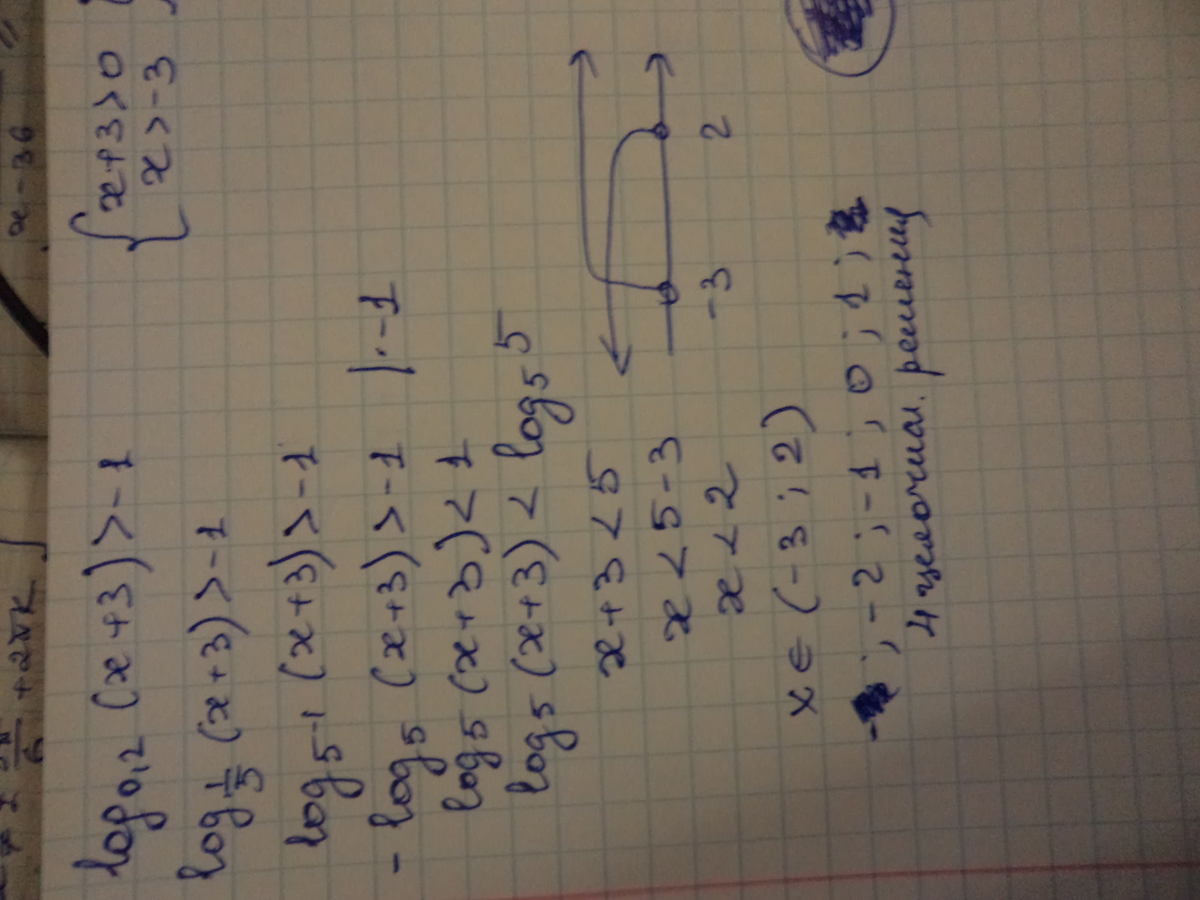 log₀,₂ (x+3) > -1
{ x+3>0
x>-3
log_{1/5} (x+3) > -1
log_{5⁻¹} (x+3) > -1
- log₅ (x+3) > -1 |·-1
log₅ (x+3) < 1
log₅ (x+3) < log₅ 5
x+3 < 5
x < 5-3
x < 2
-3 2
x ∈ (-3 ; 2)
; -2 ; -1 ; 0 ; 1 ;
4 целочисл. решения
+ 2πk
x - 36